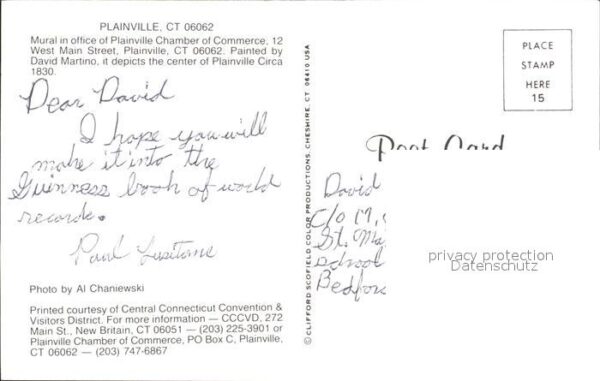 PLAINVILLE, CT 06062
Mural in office of Plainville Chamber of Commerce, 12
West Main Street, Plainville, CT 06062. Painted by
David Martino, it depicts the center of Plainville Circa
1830.
Dear David
I hope you will
make it into the
Guinness book of world
records.
Paul
Photo by Al Chaniewski
Printed courtesy of Central Connecticut Convention &
Visitors District. For more information — CCCVD, 272
Main St., New Britain, CT 06051 — (203) 225-3901 or
Plainville Chamber of Commerce, PO Box C, Plainville,
CT 06062 — (203) 747-6867
© CLIFFORD SCOFIELD COLOR PRODUCTIONS, CHESHIRE, CT 06410 USA
PLACE
STAMP
HERE
15
Post Card
David
C/O M
St. Ma
school
Bedfor
privacy protection
Datenschutz